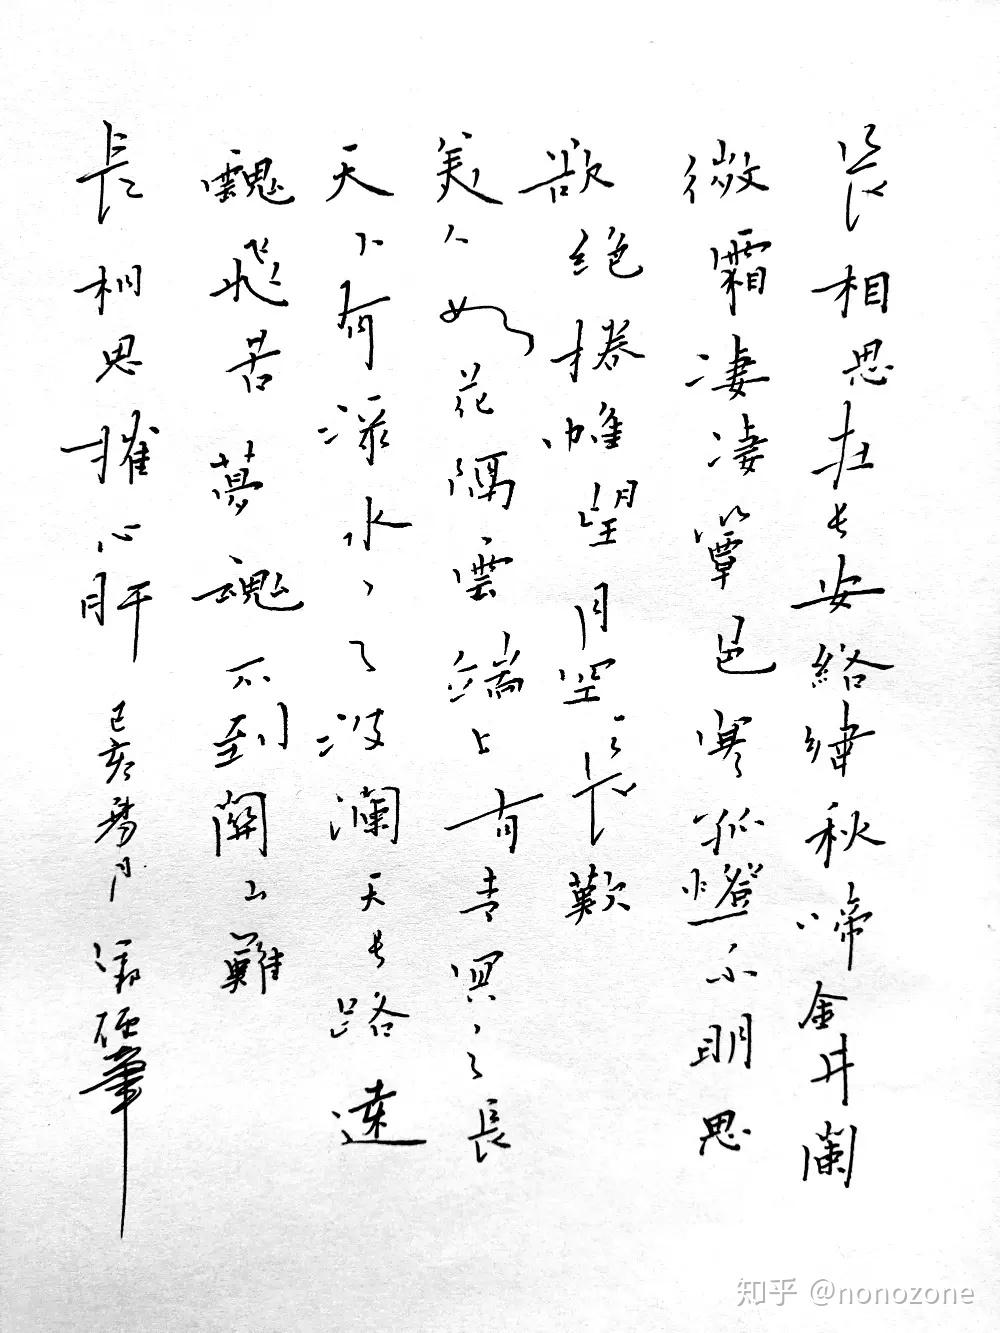 長相思在長安絡緯秋啼金井闌
微霜淒淒簟色寒孤燈不明思
欲絕捲帷望月空長歎
美人如花隔雲端上有青冥之長
天下有淥水之波瀾天長路遠
魂飛苦夢魂不到關山難
長相思摧心肝 己亥 月 筆
知乎 @nonozone